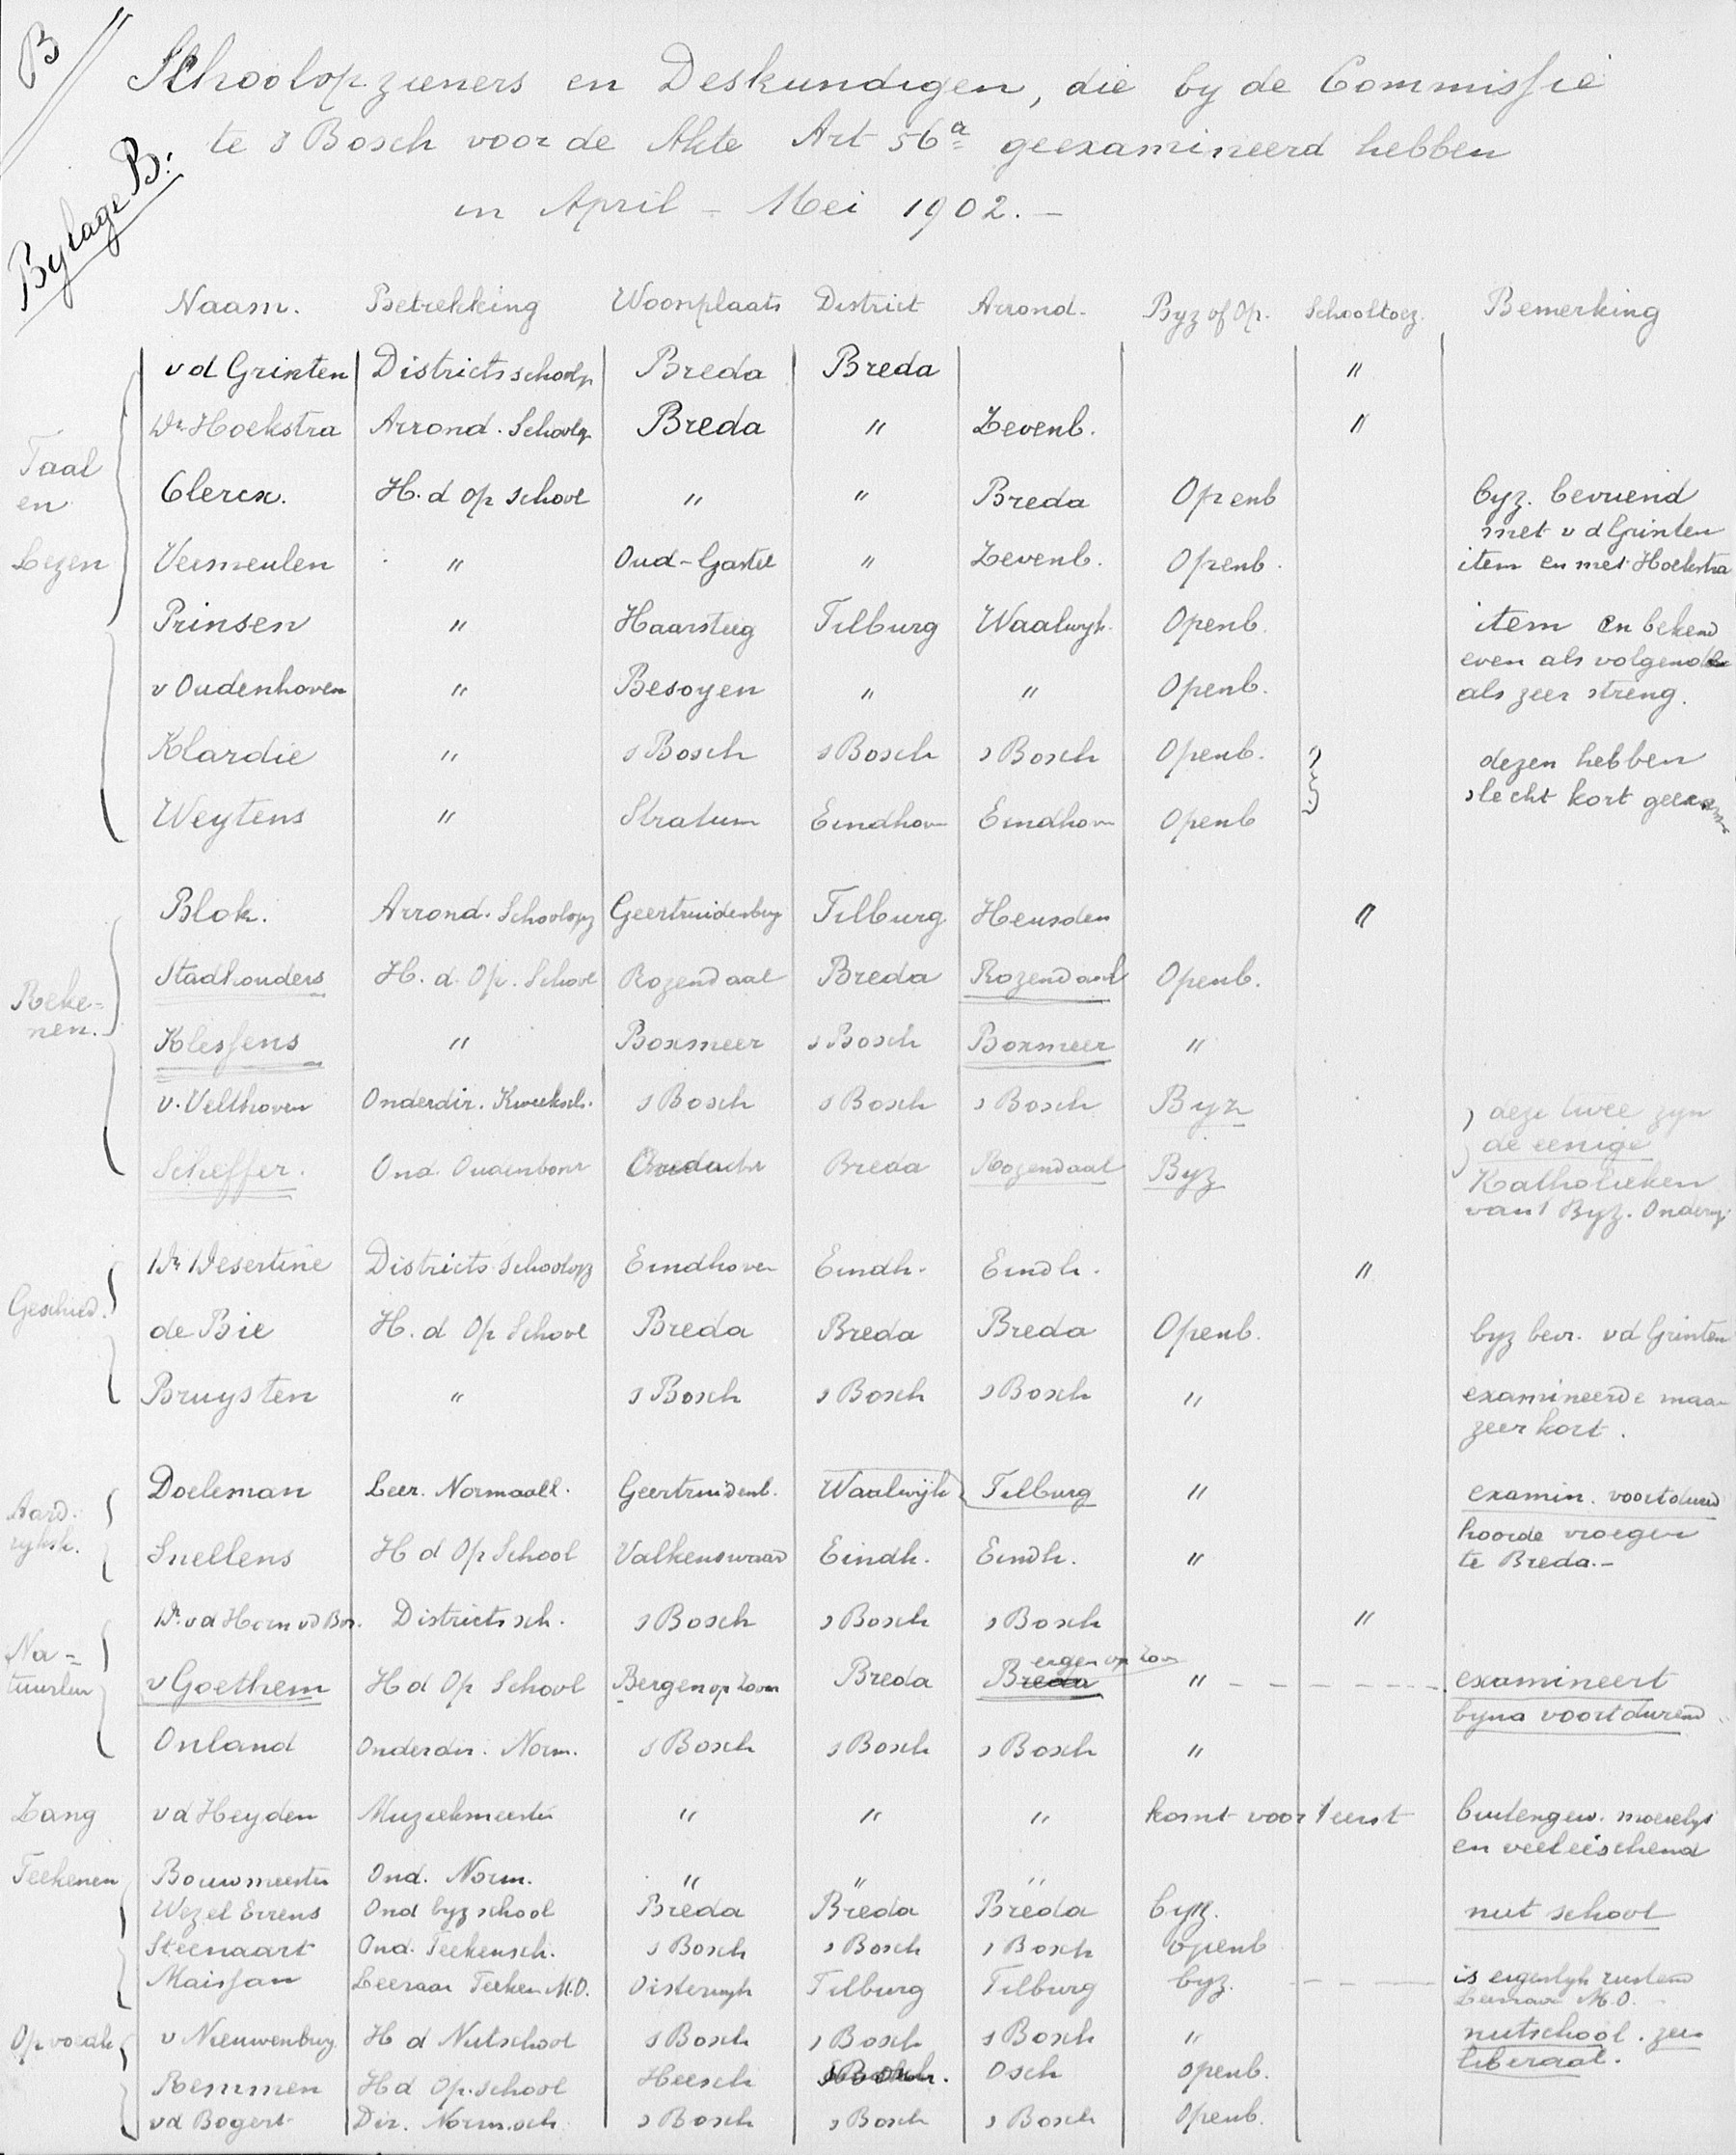 B
Schoolopzieners en Deskundigen, die by de Commissie
te s Bosch voor de Akte Art 56a geexamineerd hebben
in April - Mei 1902. -
Bylage B:
Naam. Betrekking Woonplaats District Arrond. Byz of Op. Schooltoez. Bemerking
Taal en Lezen
v d Grinten Districtsschoolp Breda Breda "
Dr Hoekstra Arrond. Schoolp Breda " Zevenb. "
Clercx. H. d op school " " Breda Openb byz. bevriend
met v d Grinten
Vermeulen " Oud-Gastel " Zevenb. Openb. item en met Hoekstra
Prinsen " Haarsteeg Tilburg Waalwyk. Openb. item en bekend
even als volgende
v Oudenhoven " Besoyen " " Openb. als zeer streng.
Klardie " s Bosch s Bosch s Bosch Openb. dezen hebben
slecht kort geexam
Weytens " Stratum Eindhoven Eindhoven Openb
Reke=
nen.
Blok. Arrond. Schoolopz Geertruidenberg Tilburg Heusden "
Stadhouders H. d. Op. School Rozendaal Breda Rozendaal Openb.
Klessens " Boxmeer s Bosch Boxmeer "
v. Velthoven Onderdir. Kweeksch. s Bosch s Bosch s Bosch Byz deze twee zyn
de eenige
Scheffer. Ond. Oudenbosch Breda Rozendaal Byz Katholieken
van t Byz. Onderwy.
Geschied.
Dr Desertine Districts Schoolopz Eindhoven Eindh. Eindh. "
de Bie H. d Op School Breda Breda Breda Openb. byz bevr. vd Grinten
Bruysten " s Bosch s Bosch s Bosch " examineerde maar
zeer kort.
Aard.
ryksk.
Doeleman Leer. Normaall. Geertruidenb. Waalwijk Tilburg " examin. voortdurend
hoorde vroeger
Snellens H d Op School Valkenswaard Eindh. Eindh. " te Breda. -
Na=
tuurken
Dr. v d Horn vd Bos. Districtsch. s Bosch s Bosch s Bosch "
v Goethem H d Op School Bergen op Zoom Breda Breda ergen op Zoom " examineert
byna voortdurend
Onland Onderdir. Norm. s Bosch s Bosch s Bosch "
Zang v d Heyden Muziekmeester " " " komt voor t eerst buitengew. moeielyk
en veeleischend
Teekenen Bouwmeester Ond. Norm. " " "
Wezel Errens Ond byz school Breda Breda Breda byz. nut school
Steenaart Ond. Teekensch. s Bosch s Bosch s Bosch openb
Maissan Leeraar Teeken M.O. Oisterwyk Tilburg Tilburg byz. is eigenlyk rustend
Leeraar M.O.
Opvoedk v Nieuwenburg H d Nutschool s Bosch s Bosch s Bosch " nutschool. zeer
liberaal.
Remmen H d Op. school Heesch s Bosch. Osch openb.
vd Bogert Dir. Norm.sch s Bosch s Bosch s Bosch Openb.